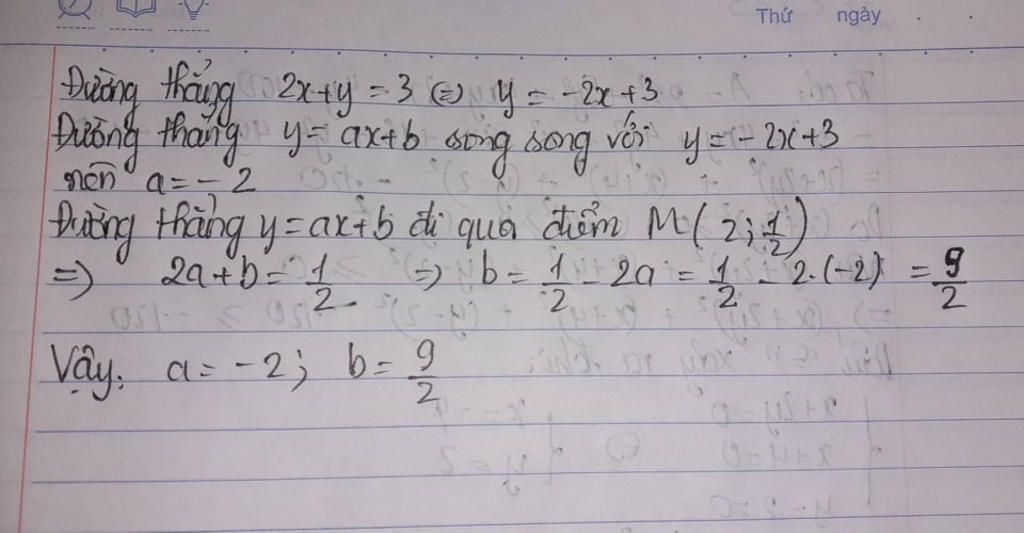 Thứ ngày
Đường thẳng 2x+y = 3 (=) y = -2x+3
Đường thẳng y = ax+b song song với y = -2x+3
nên a = -2
Đường thẳng y = ax+b đi qua điểm M(2; 1/2)
=) 2a+b = 1/2 =) b = 1/2 - 2a = 1/2 - 2.(-2) = 9/2
Vậy: a = -2; b = 9/2